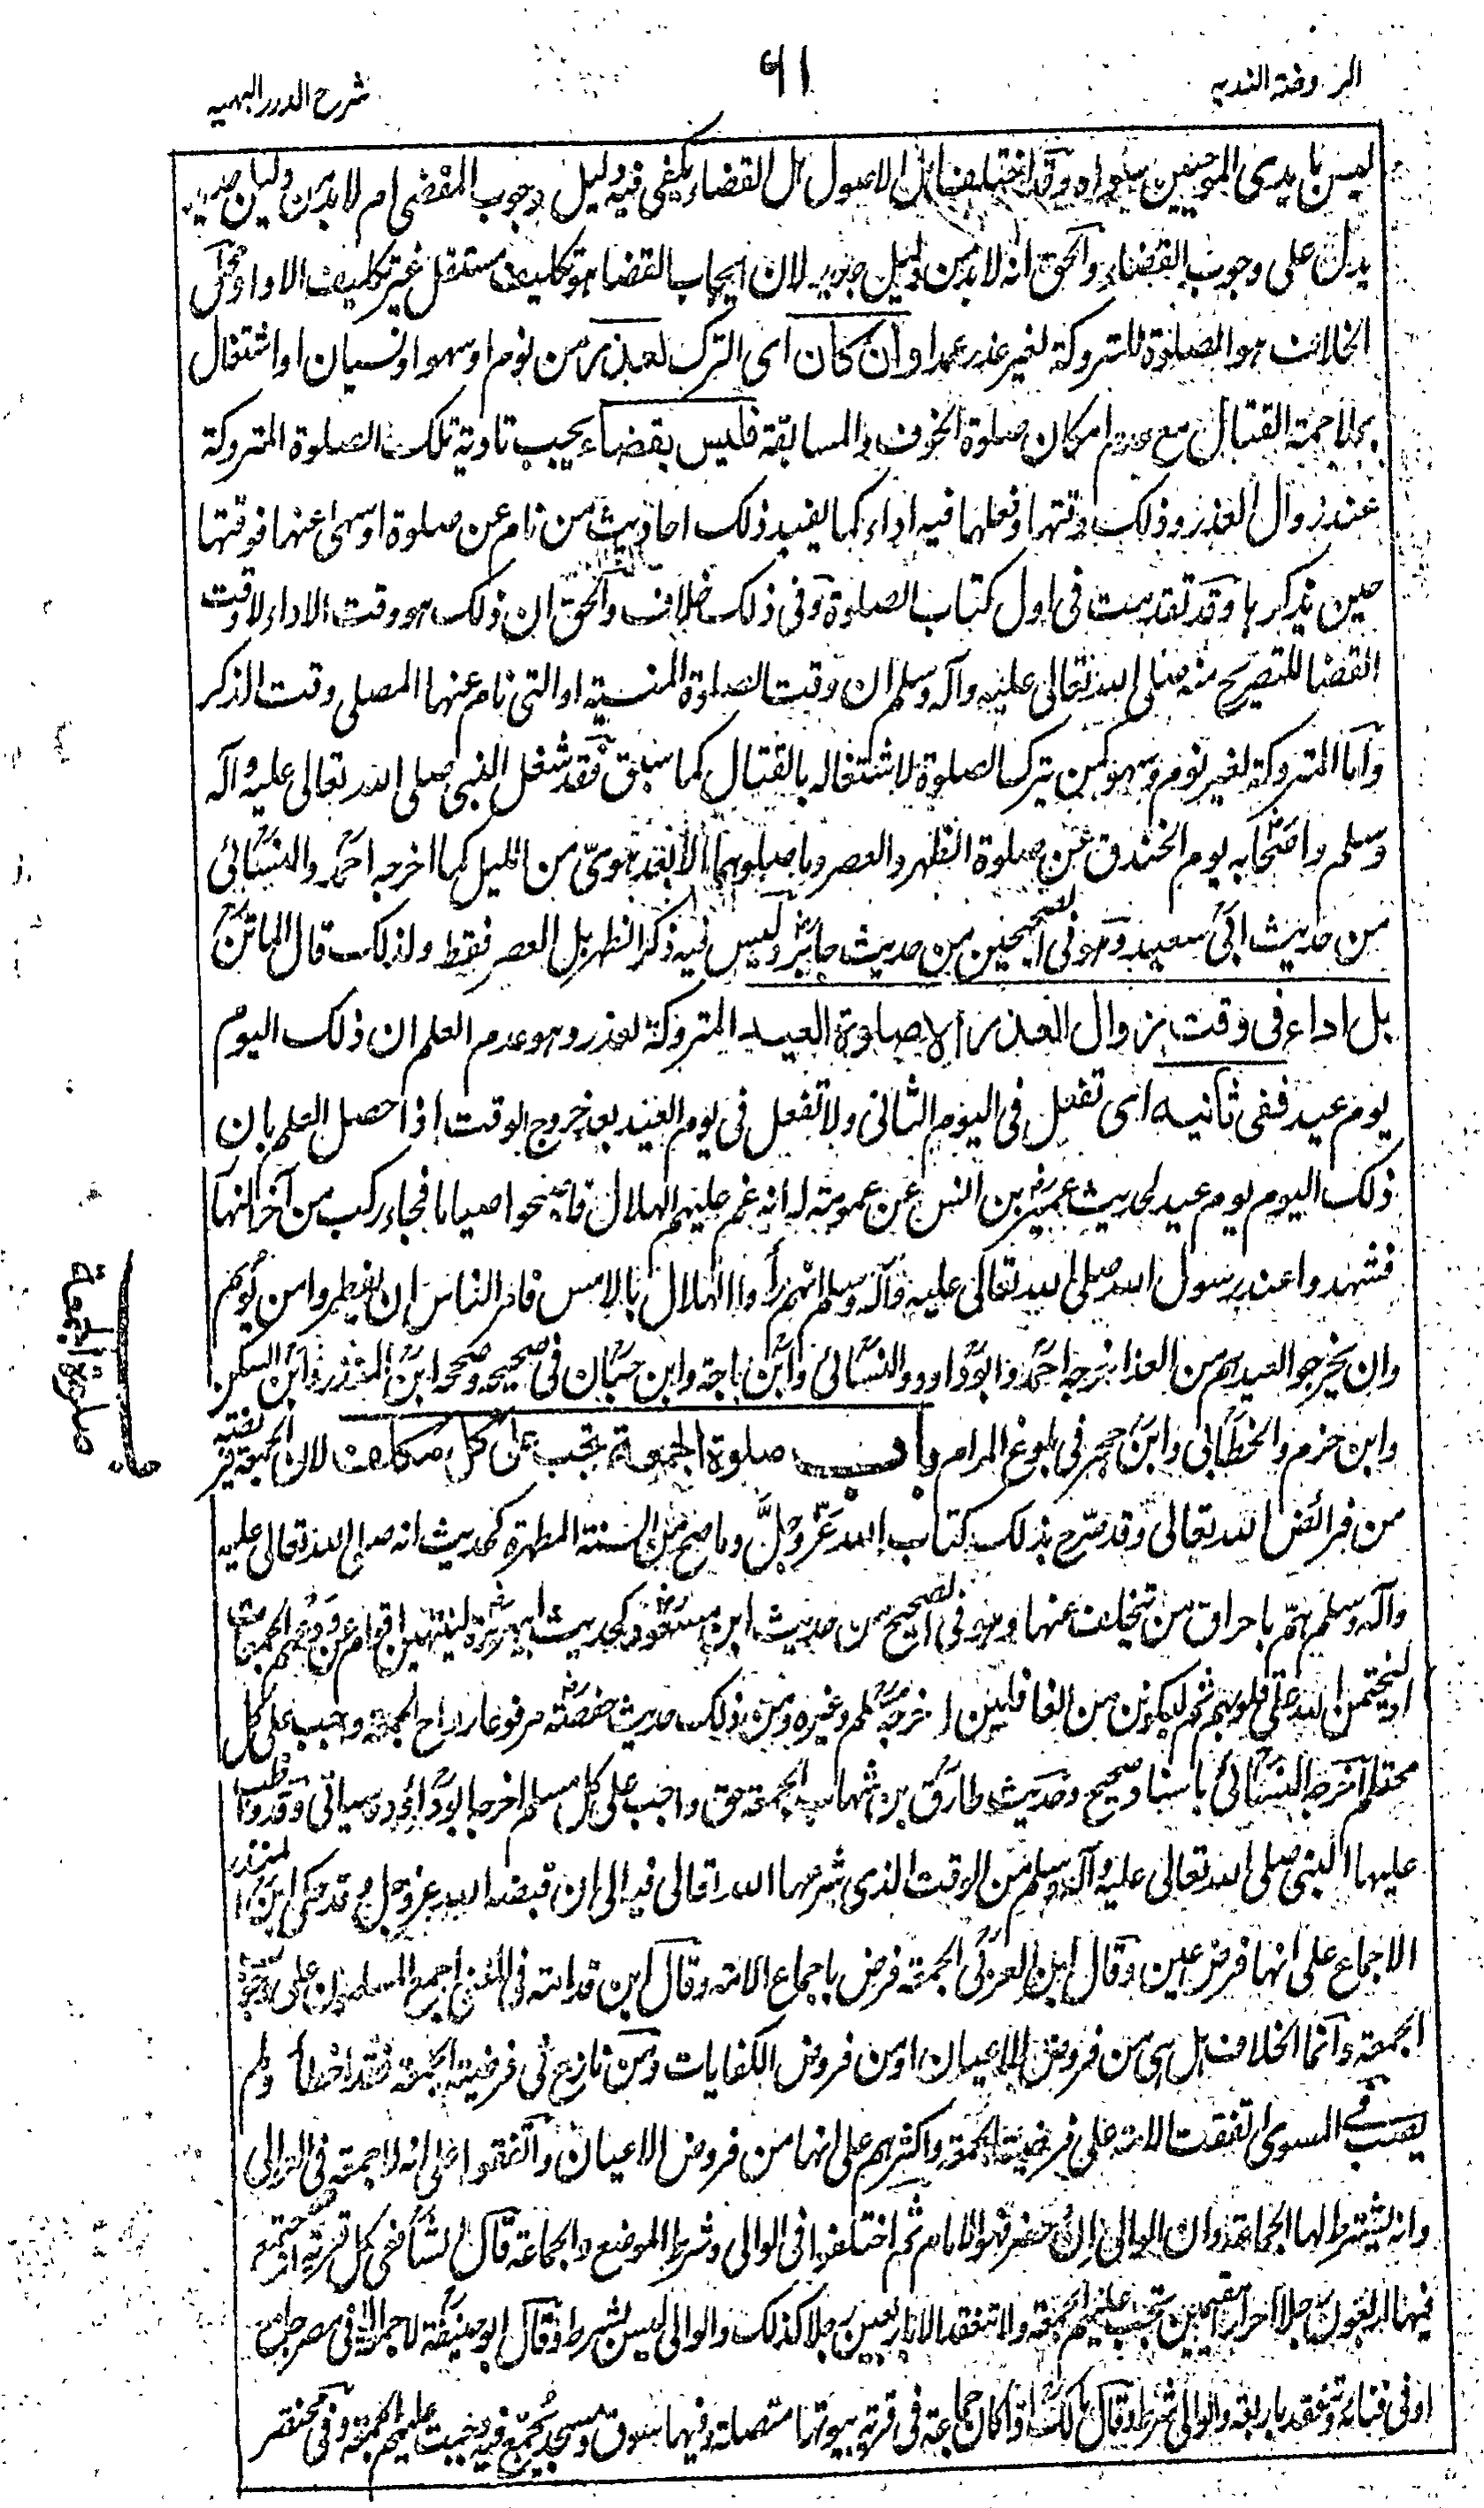 الروضة الندية
٦١
شرح الدرر البهية
ليس بايدى الموجبين سواه وقد اختلف اهل الاصول هل القضاء يكفى فيه دليل وجوب المقضى ام لا بد من دليل جديد
يدل على وجوب القضاء والحق انه لا بد من دليل جديد لان ايجاب القضا هو تكليف مستقل غير تكليف الادا ومحل
الخلاف هو الصلوة المتروكة لغير عذر عمدا وان كان اى الترك لعذر من نوم او سهو او نسيان او اشتغال
بملاحمة القتال مع عدم امكان صلوة الخوف والمسايفة فليس بقضاء يجب تادية تلك الصلوة المتروكة
عند زوال العذر وذلك وقتها وفعلها فيه اداء كما يفيد ذلك احاديث من نام عن صلوة او سهى عنها فوقتها
حين يذكرها وقد تقدمت فى اول كتاب الصلوة وفى ذلك خلاف والحق ان ذلك هو وقت الاداء لا وقت
القضا للتصريح منه صلى الله تعالى عليه وآله وسلم ان وقت الصلوة المنسية او التى نام عنها المصلى وقت الذكر
وآما المتروكة لغير نوم وسهو كمن يترك الصلوة لاشتغاله بالقتال كما سبق فقد شغل النبى صلى الله تعالى عليه وآله
وسلم واصحابه يوم الخندق عن صلوة الظهر والعصر وما صلوهما الا بعد هوىّ من الليل كما اخرجه احمد والنسائى
من حديث ابى سعيد وهو فى الصحيحين من حديث جابر وليس فيه ذكر الظهر بل العصر فقط ولذلك قال الماتن
بل اداء فى وقت زوال العذر الا صلوة العيد المتروكة لعذر وهو عدم العلم ان ذلك اليوم
يوم عيد ففى ثانيه اى تفعل فى اليوم الثانى ولا تفعل فى يوم العيد بعد خروج الوقت اذا حصل العلم بان
ذلك اليوم يوم عيد لحديث عمير بن انس عن عمومة له انه غم عليهم الهلال فاصبحوا صياما فجاء ركب من آخر النهار
فشهدوا عند رسول الله صلى الله تعالى عليه وآله وسلم انهم رأوا الهلال بالامس فامر الناس ان يفطروا من يومهم
وان يخرجوا لعيدهم من الغد اخرجه احمد وابو داود والنسائى وابن ماجة وابن حبان فى صحيحه وصححه ابن المنذر وابن السكن
وابن حزم والخطابى وابن حجر فى بلوغ المرام باب صلوة الجمعة تجب على كل مكلف لان الجمعة فريضة
من فرائض الله تعالى وقد صرح بذلك كتاب الله عزّ وجلّ وما صح من السنة المطهرة كحديث انه صلى الله تعالى عليه
وآله وسلم همّ باحراق من يتخلف عنها وهو فى الصحيح من حديث ابن مسعود وكحديث ابى هريرة لينتهين اقوام عن ودعهم الجمعات
او ليختمن الله على قلوبهم ثم ليكونن من الغافلين اخرجه مسلم وغيره ومن ذلك حديث حفصة مرفوعا رواح الجمعة واجب على كل
محتلم اخرجه النسائى باسناد صحيح وحديث طارق بن شهاب الجمعة حق واجب على كل مسلم اخرجه ابو داؤد وسياتى وقد واظب
عليها النبى صلى الله تعالى عليه وآله وسلم من الوقت الذى شرعها الله تعالى فيه الى ان قبضه الله عز وجل وقد حكى ابن المنذر
الاجماع على انها فرض عين وقال ابن العربى الجمعة فرض باجماع الامة وقال ابن قدامة فى المغنى اجمع المسلمون على وجوب
الجمعة وآنما الخلاف هل هى من فروض الاعيان او من فروض الكفايات ومن نازع فى فرضية الجمعة فقد اخطأ ولم
يصب فے المسوى اتفقت الامة على فرضية الجمعة واكثرهم على انها من فروض الاعيان واتفقوا على انه لا جمعة فى البوادى
وانه يشترط لها الجماعة وان الوالى ان حضر فهو الامام ثم اختلفوا فى الوالى وشرط الموضع والجماعة قال الشافعى كل قرية اجتمع
فيها اربعون رجلا احرارا مقيمين تجب عليهم الجمعة ولا تنعقد الا باربعين رجلا كذلك والوالى ليس بشرط وقال ابو حنيفة لا جمعة الا فى مصر جامع
او فى فنائه وتنعقد باربعة والوالى شرط وقال مالك اذا كان جماعة فى قرية بيوتها متصلة وفيها سوق ومسجد يجمّع فيه وجبت عليهم الجمعة وفى مختصر
صلوة الجمعة